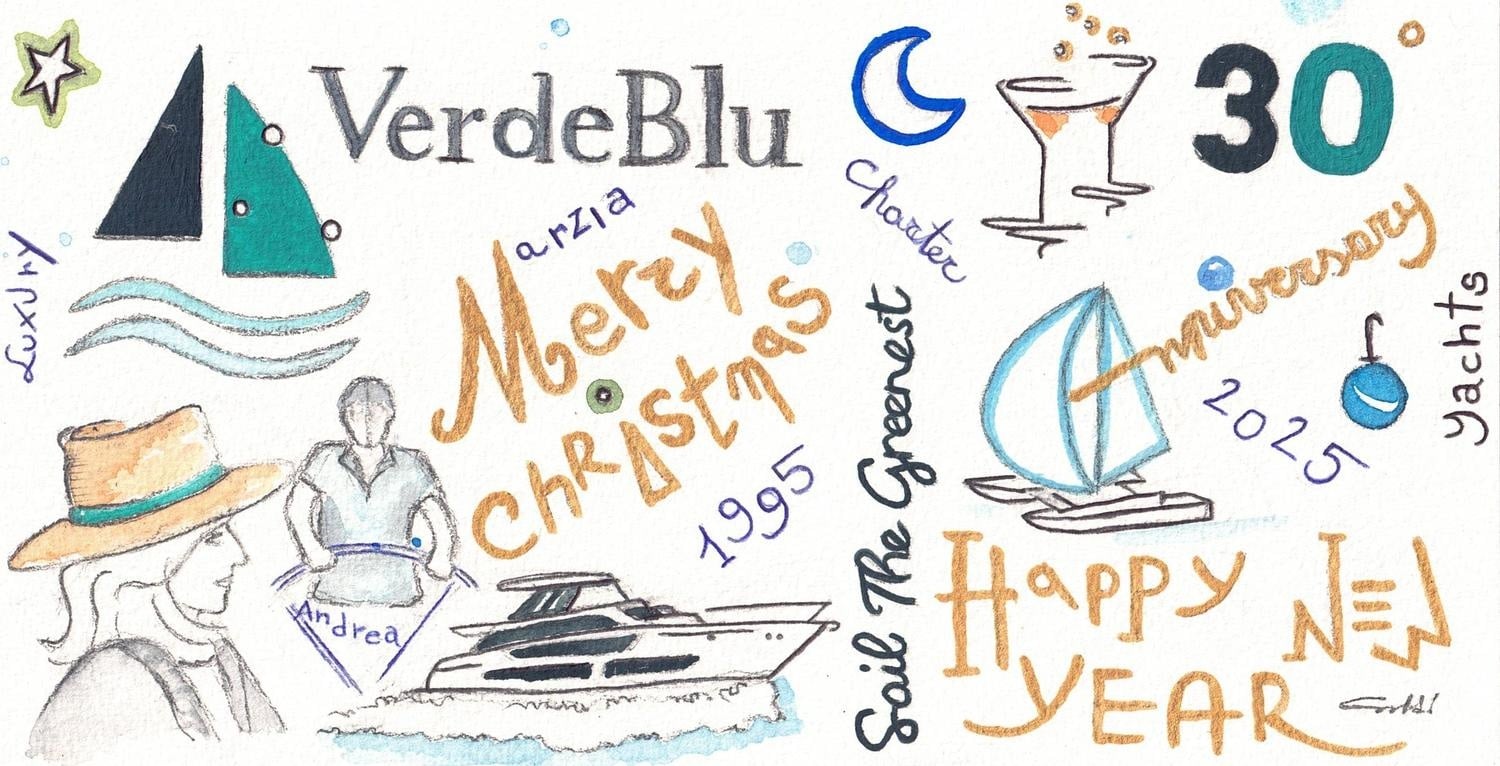 VerdeBlu
Luxury
arzia
Merry
Christmas
1995
Andrea
Charter
30
Anniversary
2025
Yachts
Sail The Greenest
Happy New
Year